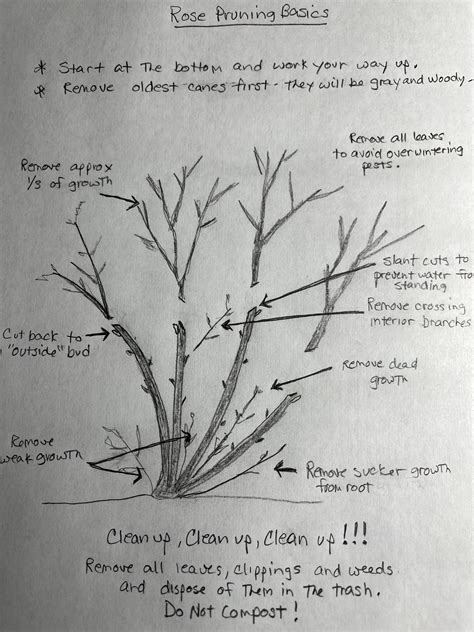 Rose Pruning Basics
* Start at the bottom and work your way up.
* Remove oldest canes first - they will be gray and woody -
Remove all leaves
to avoid overwintering
pests.
Remove approx
1/3 of growth
Slant cuts to
prevent water from
standing
Remove crossing
interior branches
Cut back to
"outside" bud
Remove dead
growth
Remove
weak growth
Remove sucker growth
from root
Clean up, Clean up, Clean up!!!
Remove all leaves, clippings and weeds
and dispose of Them in The trash.
Do Not Compost!